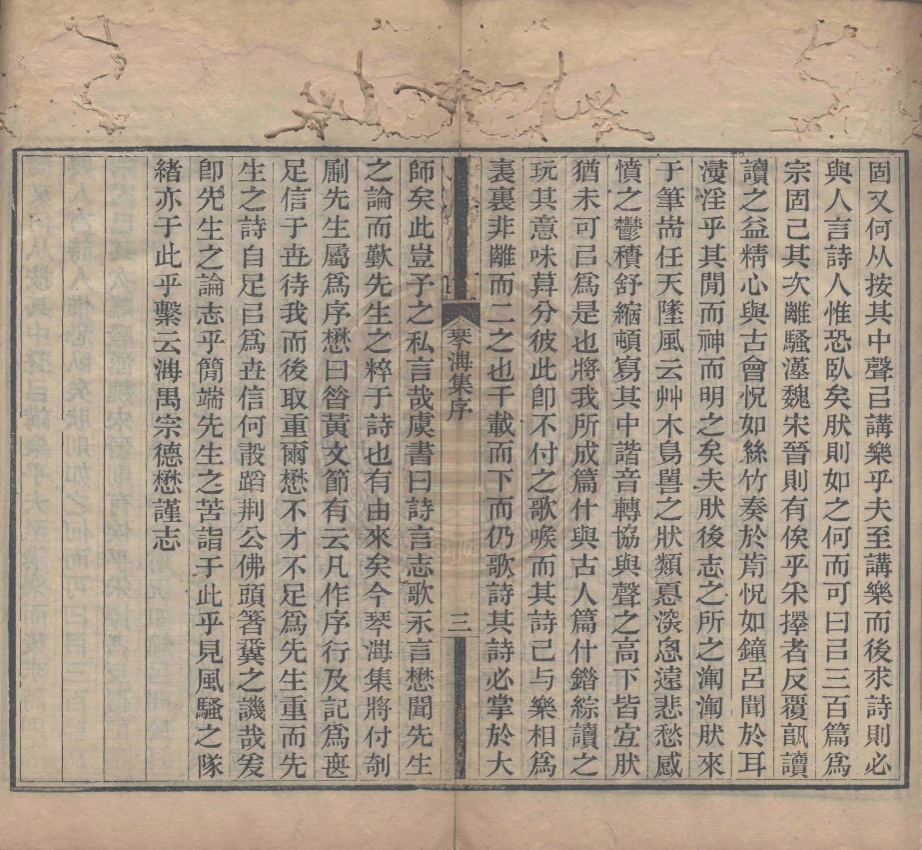 固又何从按其中聲㠯講樂乎夫至講樂而後求詩則必
與人言詩人惟恐臥矣肰則如之何而可曰㠯三百篇爲
宗固已其次離騷漢魏宋晉則有俟乎采擇者反覆諷讀
讀之益精心與古會怳如絲竹奏於前怳如鐘呂聞於耳
漫淫乎其閒而神而明之矣夫肰後志之所之淘淘肰來
于筆耑任天墜風云艸木鳥嘼之狀類惪深恖遠悲愁感
憤之鬱積舒縮頓寫其中諧音轉協與聲之高下皆宜肰
猶未可㠯爲是也將我所成篇什與古人篇什錯綜讀之
玩其意味算分彼此卽不付之歌喉而其詩已与樂相爲
表裏非離而二之也千載而下而仍歌詩其詩必掌於大
琴海集序
三
師矣此豈予之私言哉虞書曰詩言志歌永言懋聞先生
之論而歎先生之粹于詩也有由來矣今琴海集將付剞
劂先生屬爲序懋曰昝黃文節有云凡作序行及記爲喪
足信于卋待我而後取重爾懋不才不足爲先生重而先
生之詩自足㠯爲卋信何𣪊蹈荆公佛頭箸糞之譏哉爰
卽先生之論志乎簡端先生之苦詣于此乎見風騷之隊
緒亦于此乎繫云海禺宗德懋謹志